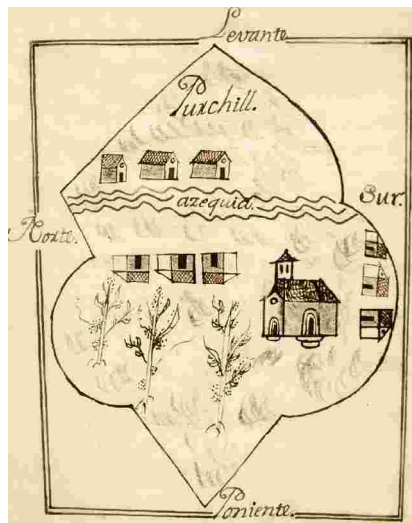 Levante
Purchill.
azequia.
Sur.
Norte.
Poniente.